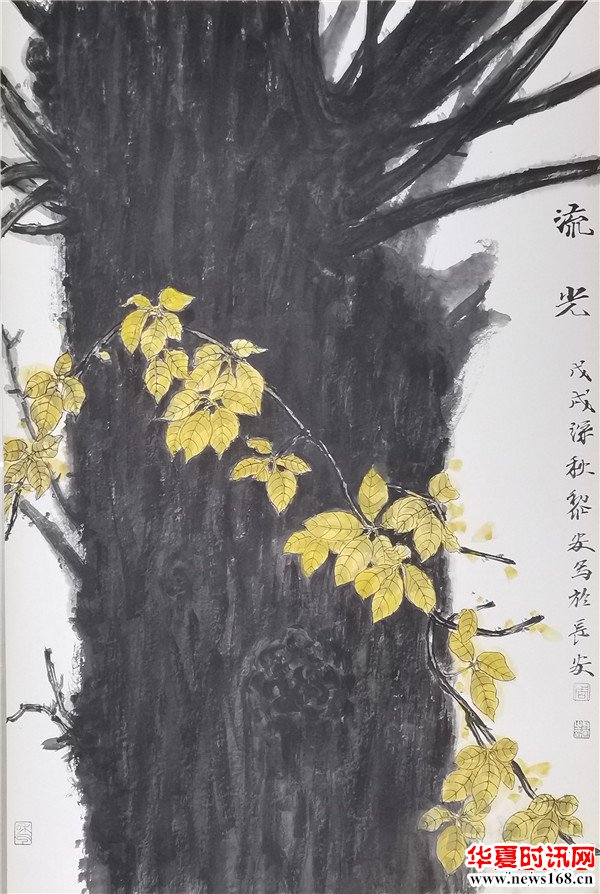 流光
戊戌深秋黎安写於長安
华夏时讯网
www.news168.cn